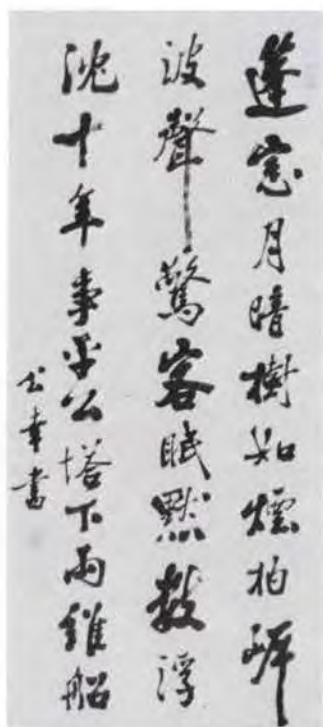 蓬窓月暗樹如煙拍岸
波聲驚客眠默數浮
沈十年事平公塔下兩維船
公幸書